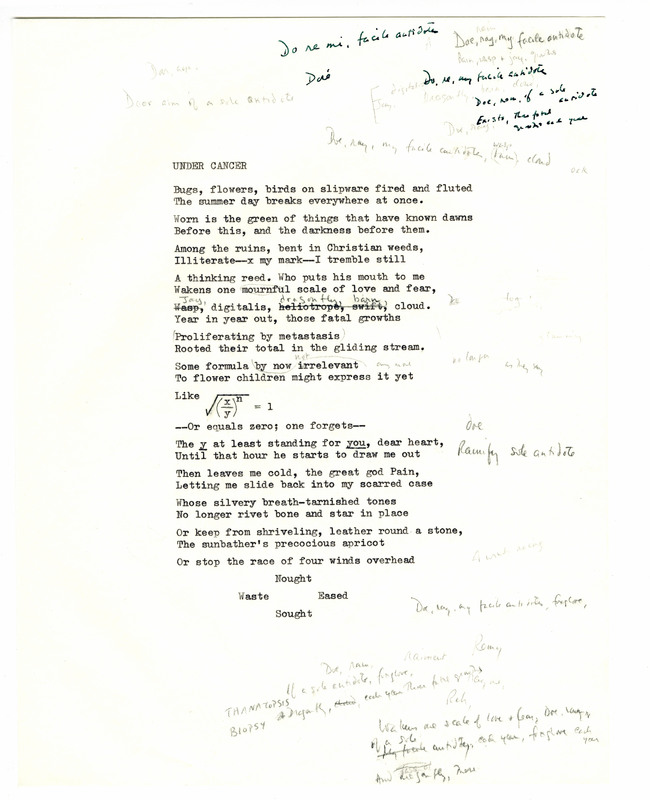 Do re mi, facile antidote
Doe, ray, my facile antidote
Doré
Do, re, my facile antidote
Dear sim of a sole antidote
Doe, ram, of a sole antidote
Exists, these fatal growths each year
Doe, ray, my facile antidote, cloud
UNDER CANCER
Bugs, flowers, birds on slipware fired and fluted
The summer day breaks everywhere at once.
Worn is the green of things that have known dawns
Before this, and the darkness before them.
Among the ruins, bent in Christian weeds,
Illiterate--x my mark--I tremble still
A thinking reed. Who puts his mouth to me
Wakens one mournful scale of love and fear,
Jay, dragonfly, barn
Wasp, digitalis, heliotrope, swift, cloud.
Year in year out, those fatal growths
Proliferating by metastasis
Rooted their total in the gliding stream.
not
Some formula by now irrelevant
no longer
To flower children might express it yet
Like √(x/y)ⁿ = 1
--Or equals zero; one forgets--
Doe
The y at least standing for you, dear heart,
Until that hour he starts to draw me out
Ramify sole antidote
Then leaves me cold, the great god Pain,
Letting me slide back into my scarred case
Whose silvery breath-tarnished tones
No longer rivet bone and star in place
Or keep from shriveling, leather round a stone,
The sunbather's precocious apricot
Or stop the race of four winds overhead
Nought
Waste Eased
Sought
Doe, ray, my facile antidote, foxglove,
Doe, ram,
If a sole antidote, foxglove,
THANATOPSIS
BIOPSY
Wakens one scale of love & fear, Doe,
of a sole
my facile antidote, each year, foxglove each year
And dragonfly, these